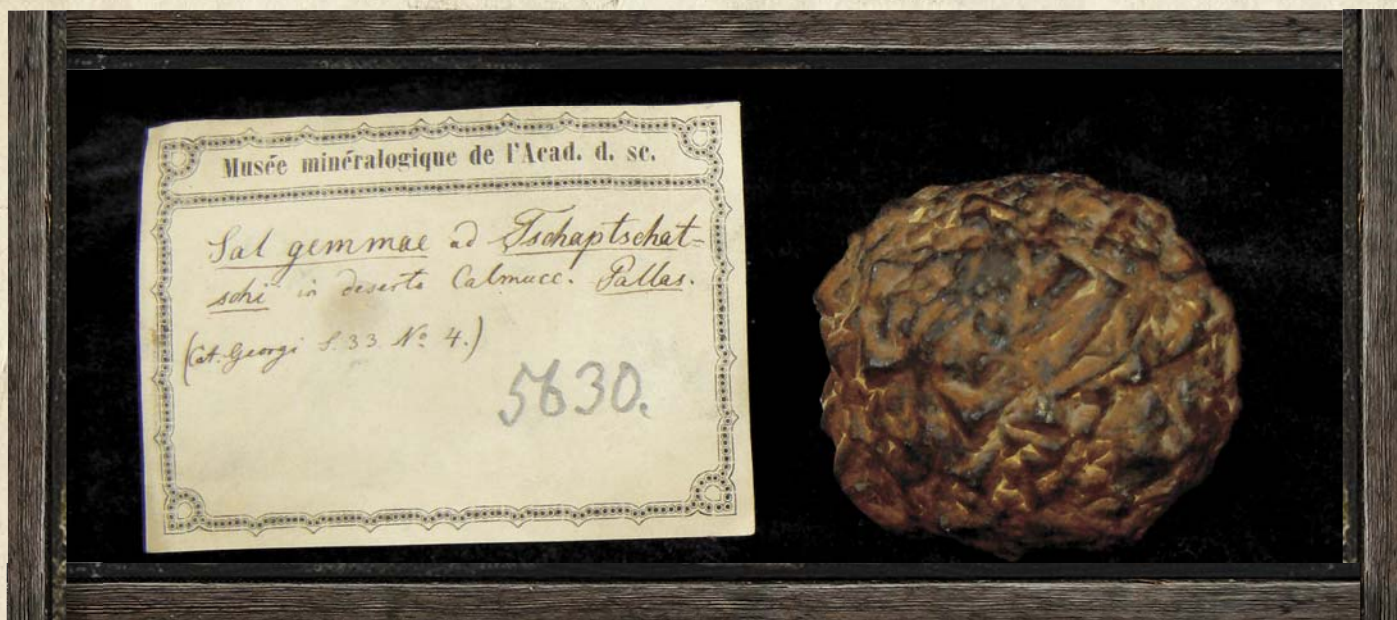 Musée minéralogique de l'Acad. d. sc.
Sal gemmae ad Tschaptschat-
schi in deserto Calmucc. Pallas.
(Cat. Georgi S. 33 № 4.)
5630.